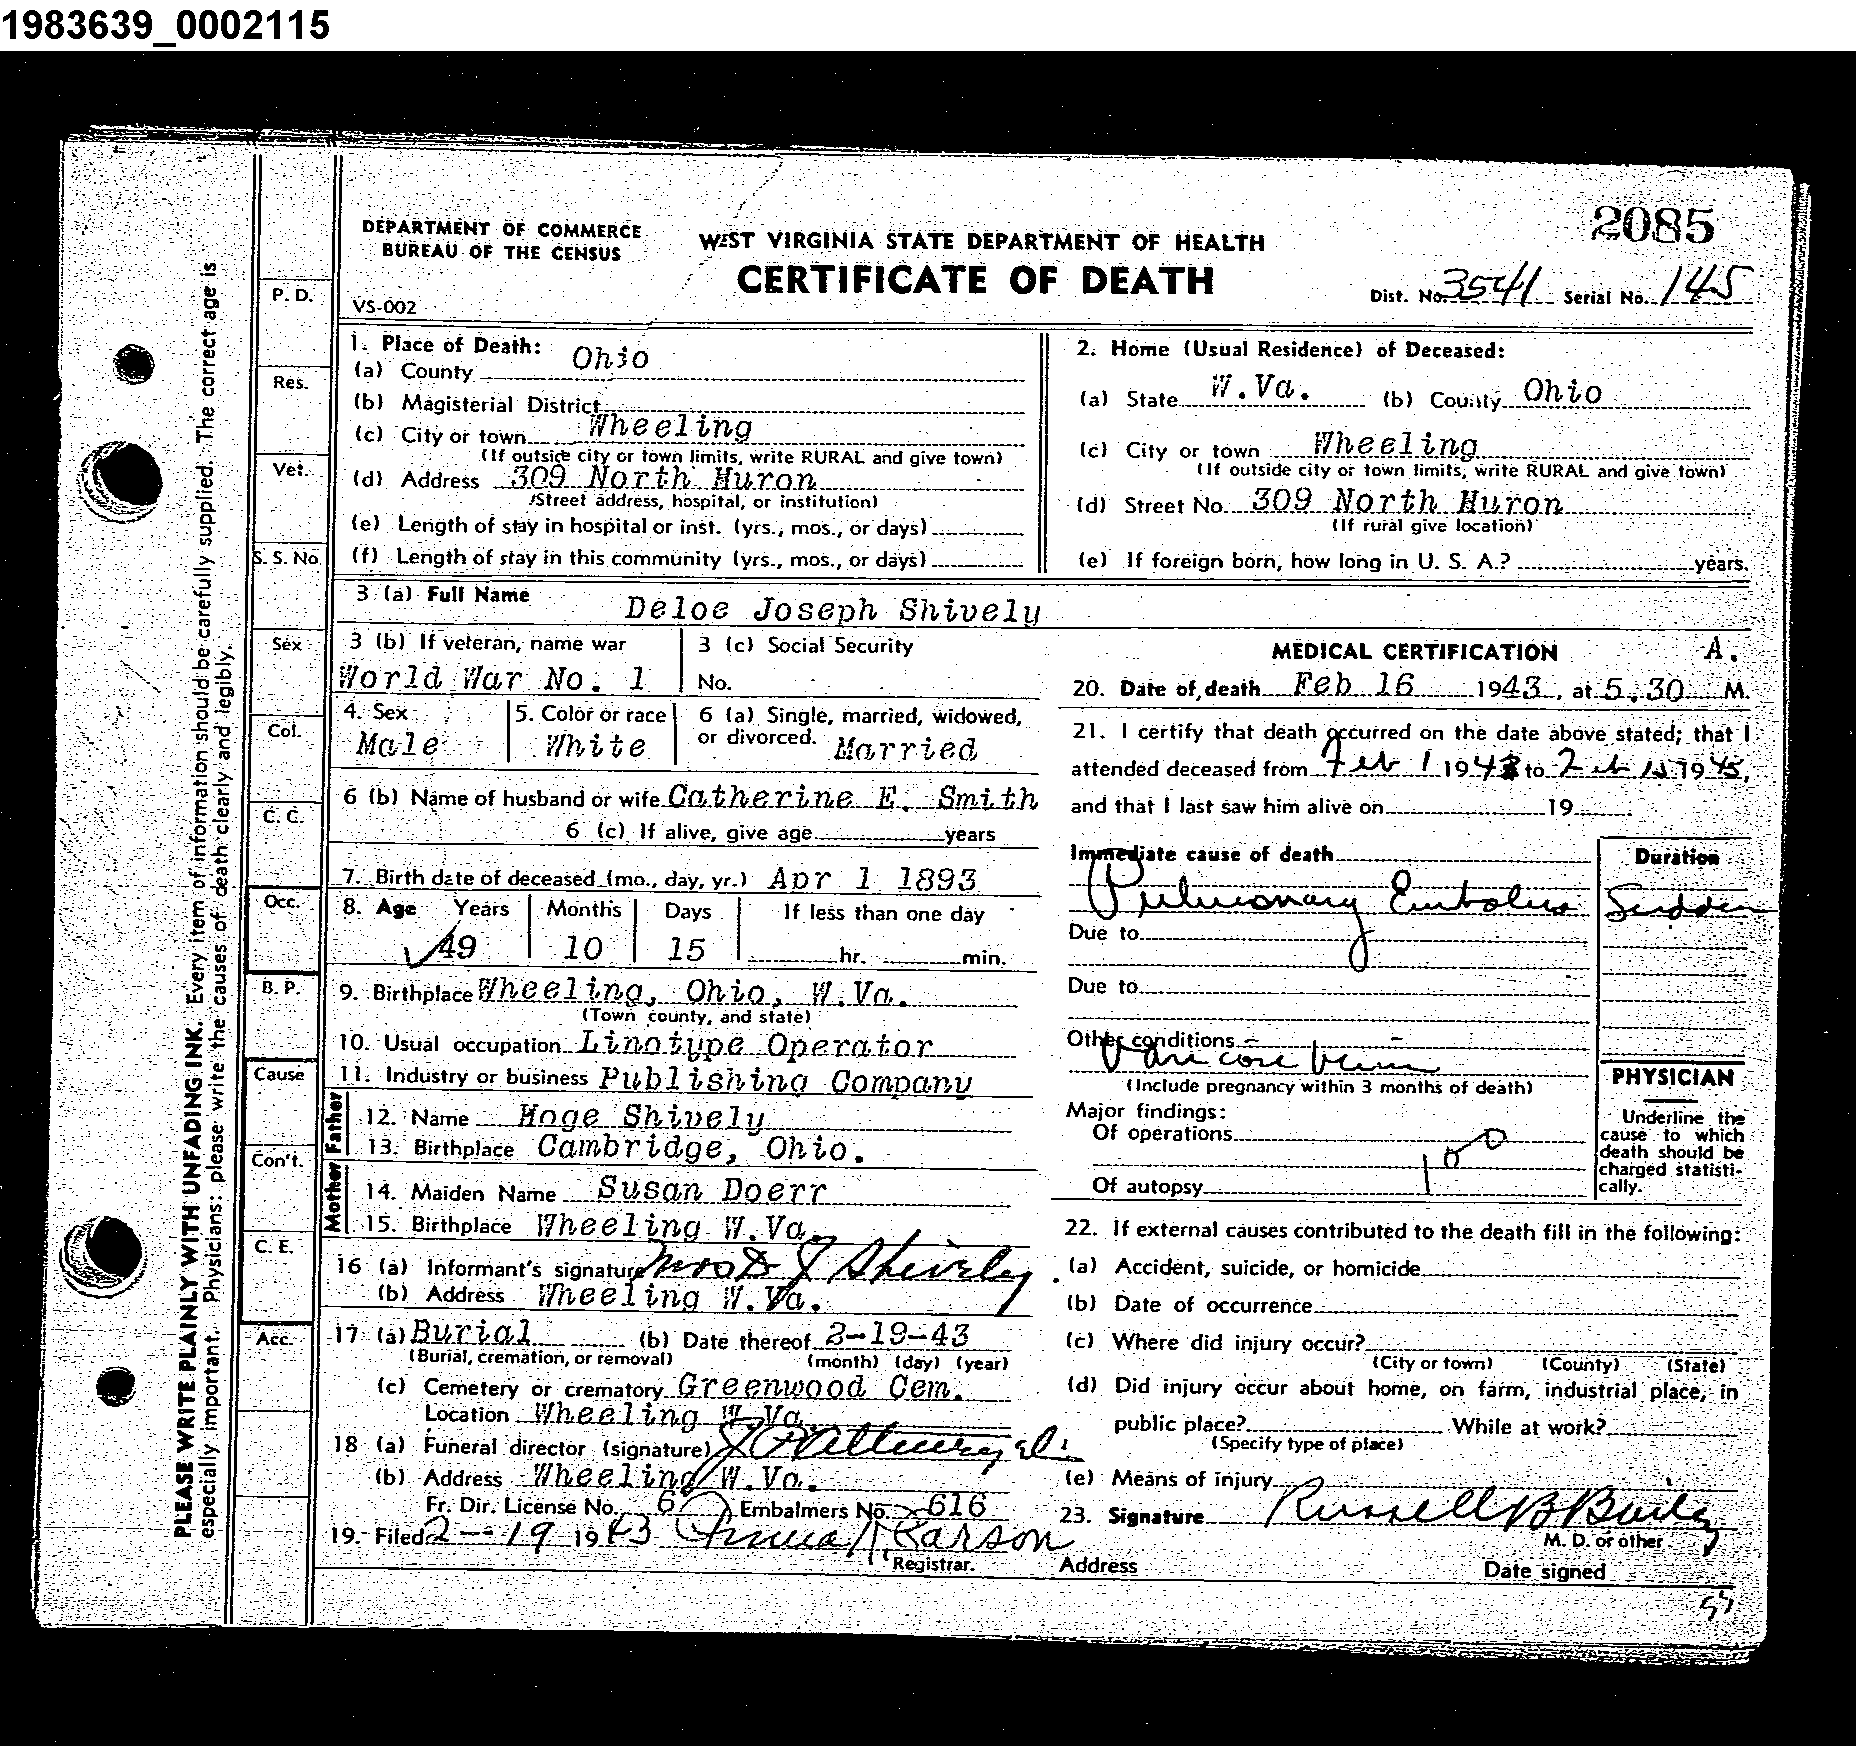 1983639_0002115
2085
DEPARTMENT OF COMMERCE
BUREAU OF THE CENSUS
WEST VIRGINIA STATE DEPARTMENT OF HEALTH
CERTIFICATE OF DEATH
VS-002
Dist. No. 3541 Serial No. 145
PLEASE WRITE PLAINLY WITH UNFADING INK. Every item of information should be carefully supplied. The correct age is
especially important. Physicians: please write the causes of death clearly and legibly.
P. D.
Res.
Vet.
S. S. No.
Sex
Col.
C. C.
Occ.
B. P.
Cause
Con't.
C. E.
Acc.
1. Place of Death:
(a) County Ohio
(b) Magisterial District
(c) City or town Wheeling
(If outside city or town limits, write RURAL and give town)
(d) Address 309 North Huron
(Street address, hospital, or institution)
(e) Length of stay in hospital or inst. (yrs., mos., or days)
(f) Length of stay in this community (yrs., mos., or days)
2. Home (Usual Residence) of Deceased:
(a) State W.Va. (b) County Ohio
(c) City or town Wheeling
(If outside city or town limits, write RURAL and give town)
(d) Street No. 309 North Huron
(If rural give location)
(e) If foreign born, how long in U. S. A.? years.
3 (a) Full Name Deloe Joseph Shively
3 (b) If veteran, name war
World War No. 1
3 (c) Social Security
No.
4. Sex
Male
5. Color or race
White
6 (a) Single, married, widowed,
or divorced. Married
6 (b) Name of husband or wife Catherine E. Smith
6 (c) If alive, give age years
7. Birth date of deceased (mo., day, yr.) Apr 1 1893
8. Age Years Months Days If less than one day
49 10 15 hr. min.
9. Birthplace Wheeling, Ohio, W.Va.
(Town county, and state)
10. Usual occupation Linotype Operator
11. Industry or business Publishing Company
Father
12. Name Hoge Shively
13. Birthplace Cambridge, Ohio.
Mother
14. Maiden Name Susan Doerr
15. Birthplace Wheeling W.Va.
16 (a) Informant's signature Mrs D J Shively
(b) Address Wheeling W.Va.
17 (a) Burial (b) Date thereof 2-19-43
(Burial, cremation, or removal) (month) (day) (year)
(c) Cemetery or crematory Greenwood Cem.
Location Wheeling W.Va
18 (a) Funeral director (signature)
(b) Address Wheeling W.Va.
Fr. Dir. License No. 6 Embalmers No. 616
19. Filed 2-19 1943
Registrar.
MEDICAL CERTIFICATION A.
20. Date of death Feb 16 1943, at 5.30 M.
21. I certify that death occurred on the date above stated; that I
attended deceased from Feb 1 1943 to Feb 1943,
and that I last saw him alive on 19
Immediate cause of death
Duration
Pulmonary Embolus Sudden
Due to
Due to
Other conditions
Varicose Veins
(Include pregnancy within 3 months of death)
Major findings:
Of operations
Of autopsy
100
PHYSICIAN
Underline the
cause to which
death should be
charged statisti-
cally.
22. If external causes contributed to the death fill in the following:
(a) Accident, suicide, or homicide
(b) Date of occurrence
(c) Where did injury occur?
(City or town) (County) (State)
(d) Did injury occur about home, on farm, industrial place, in
public place? While at work?
(Specify type of place)
(e) Means of injury
23. Signature Russell B Bailey
M. D. or other
Address Date signed